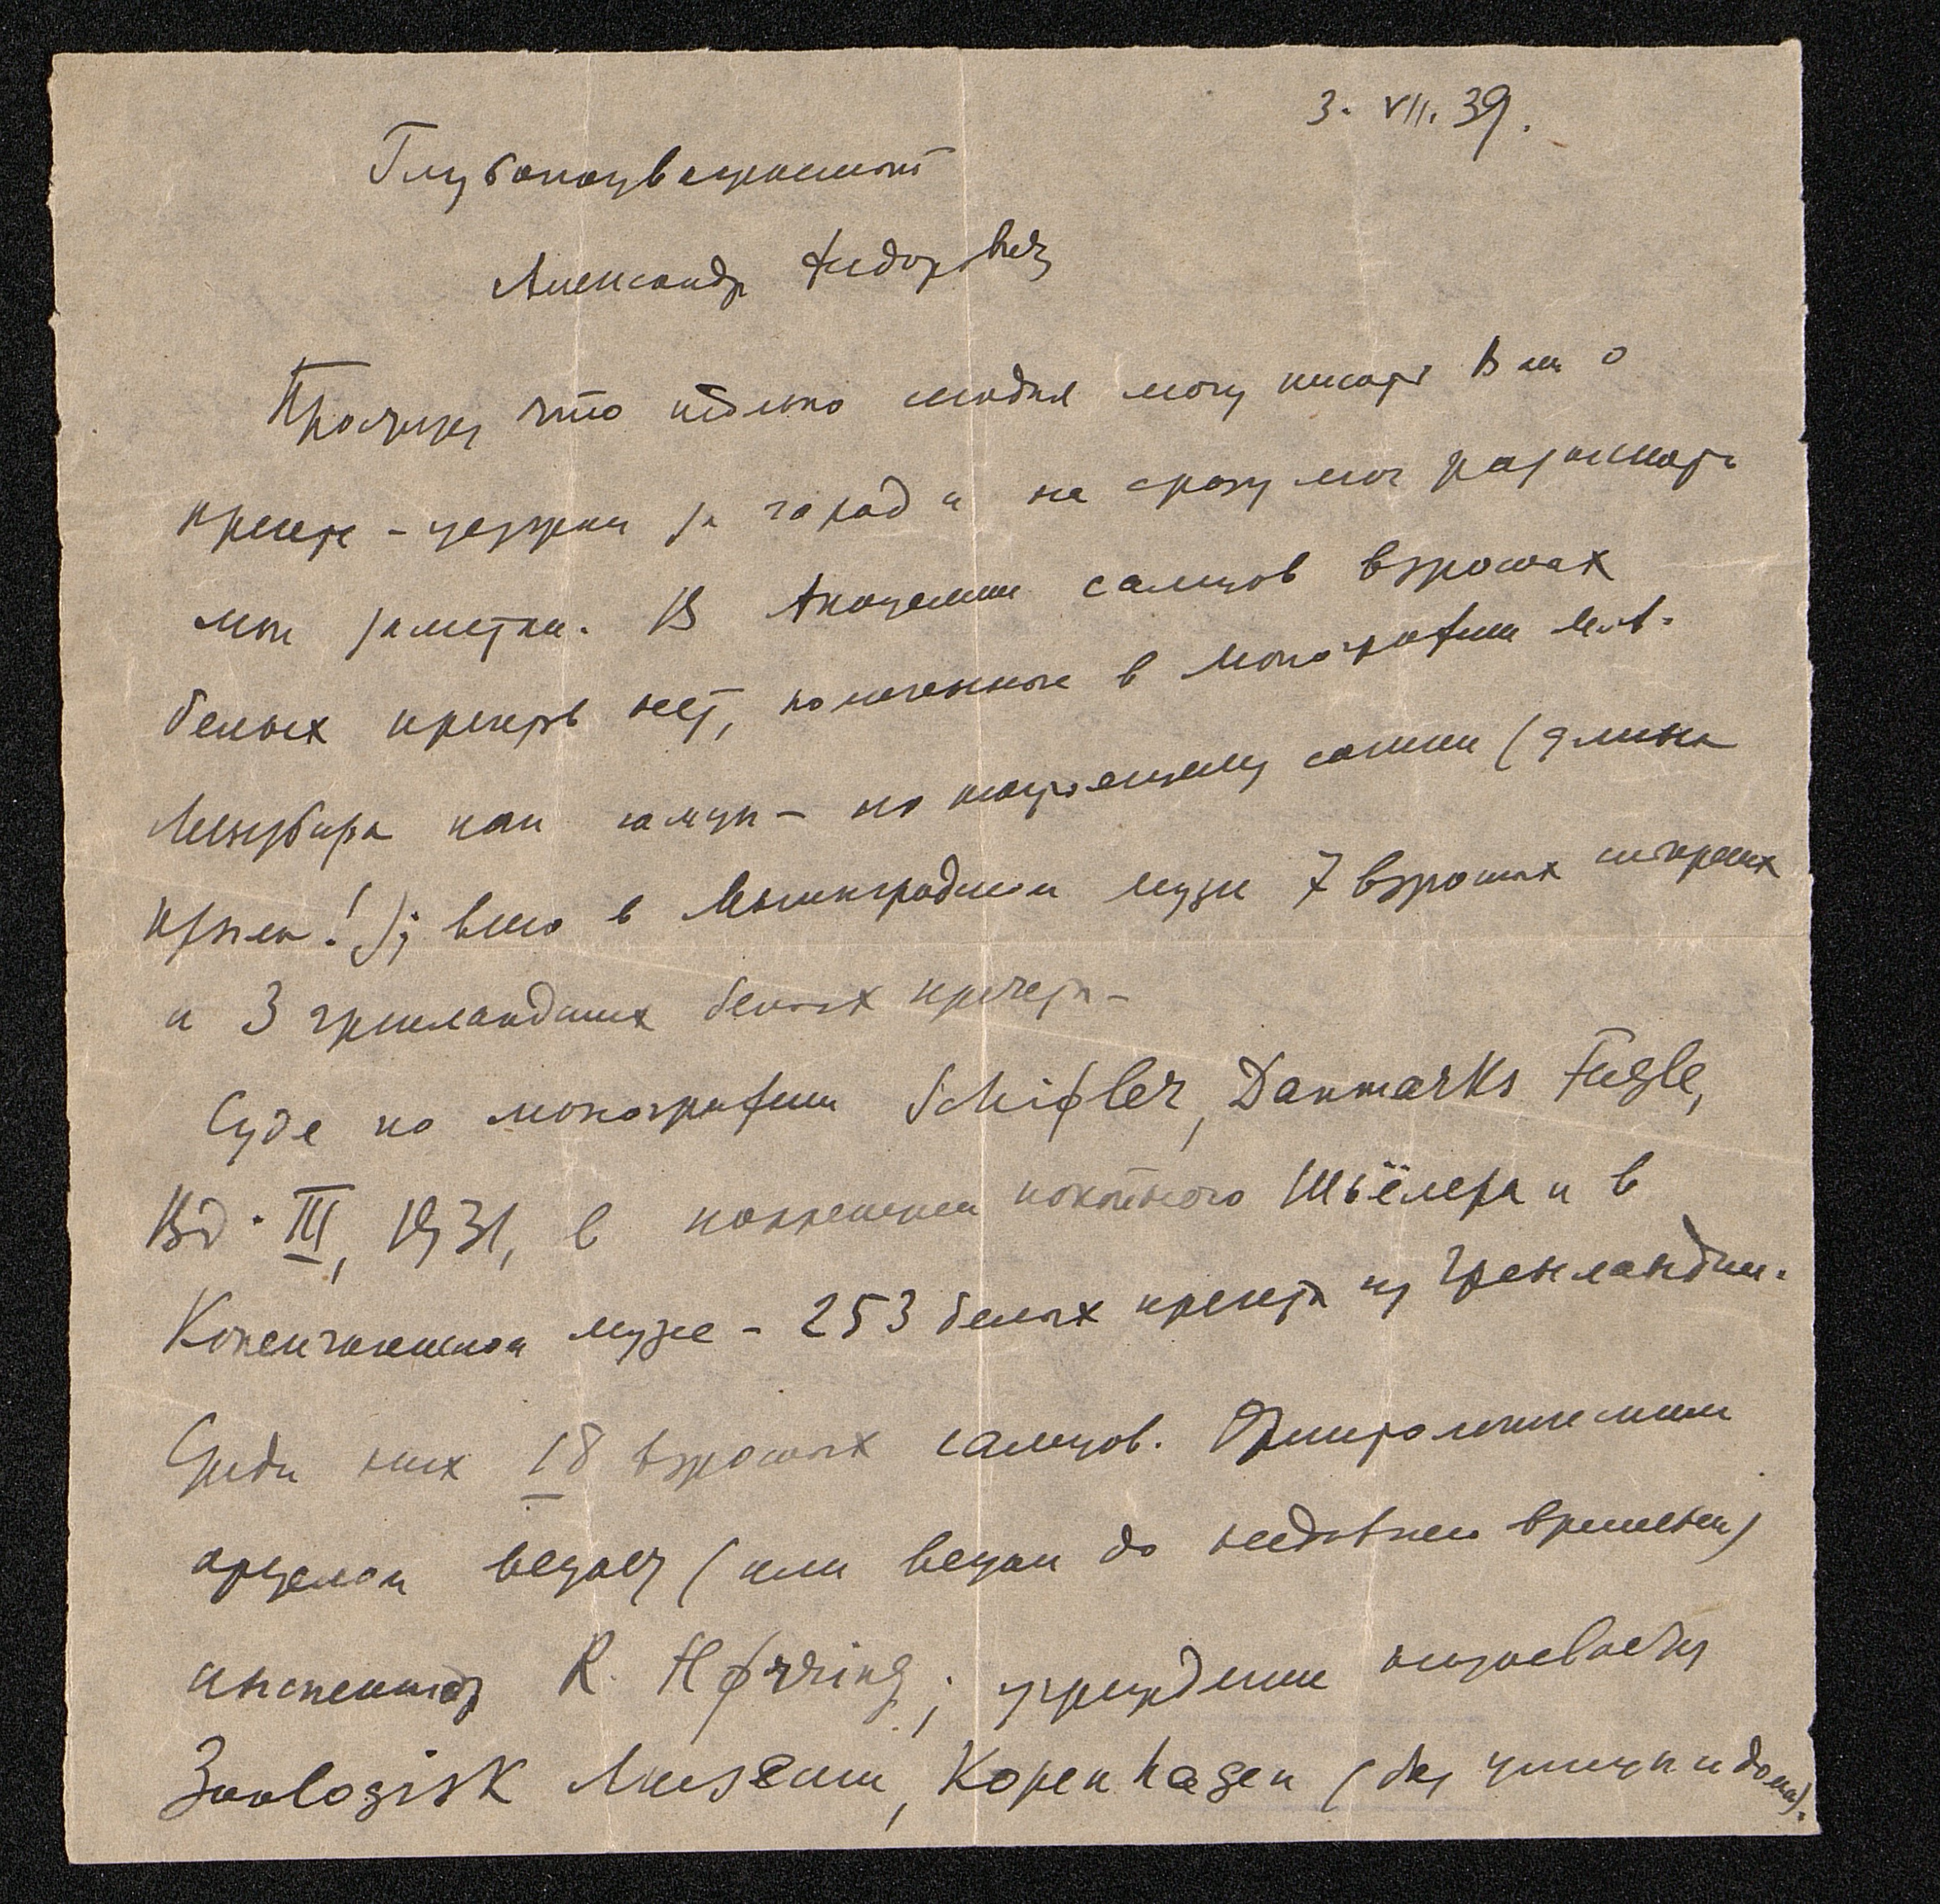 3. VII. 39.
Глубокоуважаемый
Александр Федорович
что только сегодня могу писать Вам о
кречете – уезжал за город и не сразу мог разыскать
мои заметки. В Академии самцов взрослых
белых кречетов нет, помеченные в монографии
Мензбира как самцы – по настоящему самки (длина
крыла!); всего в Ленинградском музее 7 взрослых
и 3 гренландских белых кречета –
Судя по монографии Schiøler, Danmarks Fugle,
Bd. III, 1931, в коллекции покойного Шьёлера и в
Копенгагенском музее – 253 белых кречета из Гренландии.
Среди них 18 взрослых самцов. Орнитологическим
отделом ведает (или ведал до недавнего времени)
инспектор R. Hørring; учреждение называется
Zoologisk Museum, Kopenhagen (без улицы и дома).